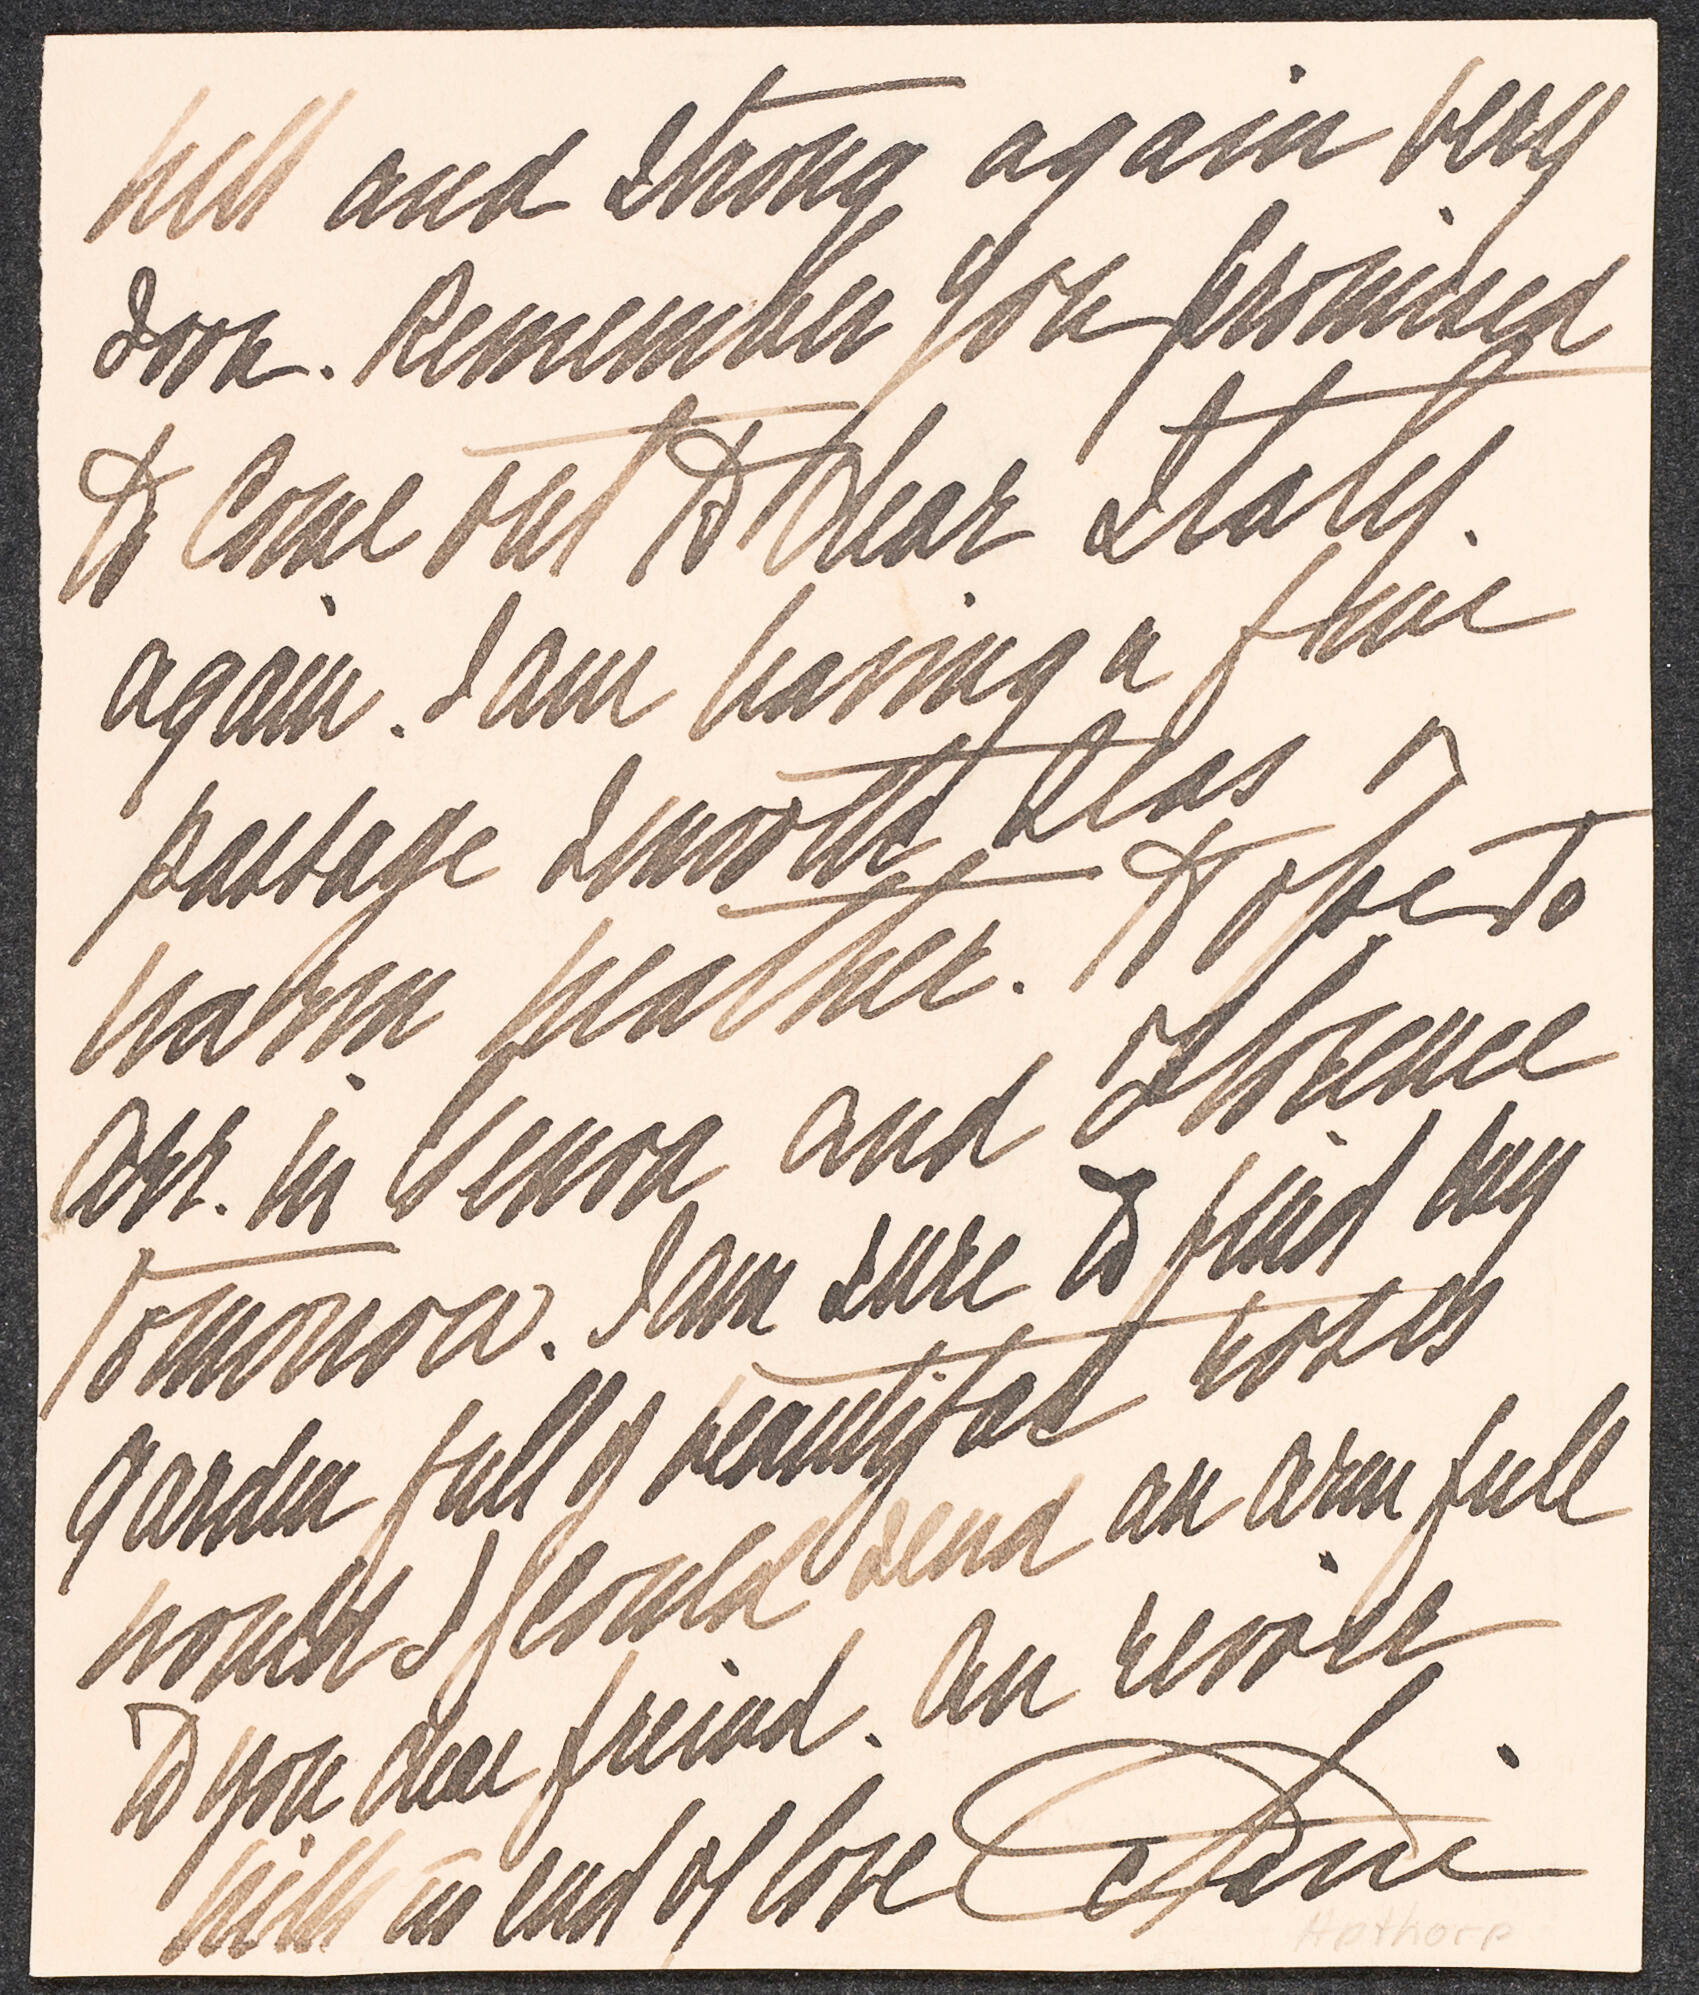 well and strong again very
soon. Remember you promised
to come out to dear Italy.
again. I am having a fine
passage smooth seas &
warm weather. Hope to
arr. in Genoa and Florence
tomorrow. I am sure to find my
garden full of beautiful roses
would I could send an arm full
to you dear freind. Au revoir
with no end of love
Apthorp